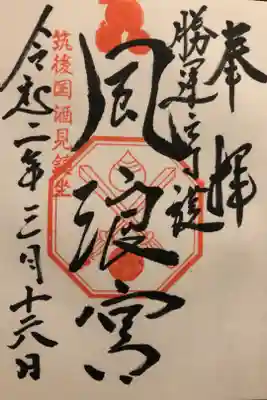 奉拝
勝運守護
風浪宮
筑後国酒見鎮坐
令和二年三月十六日